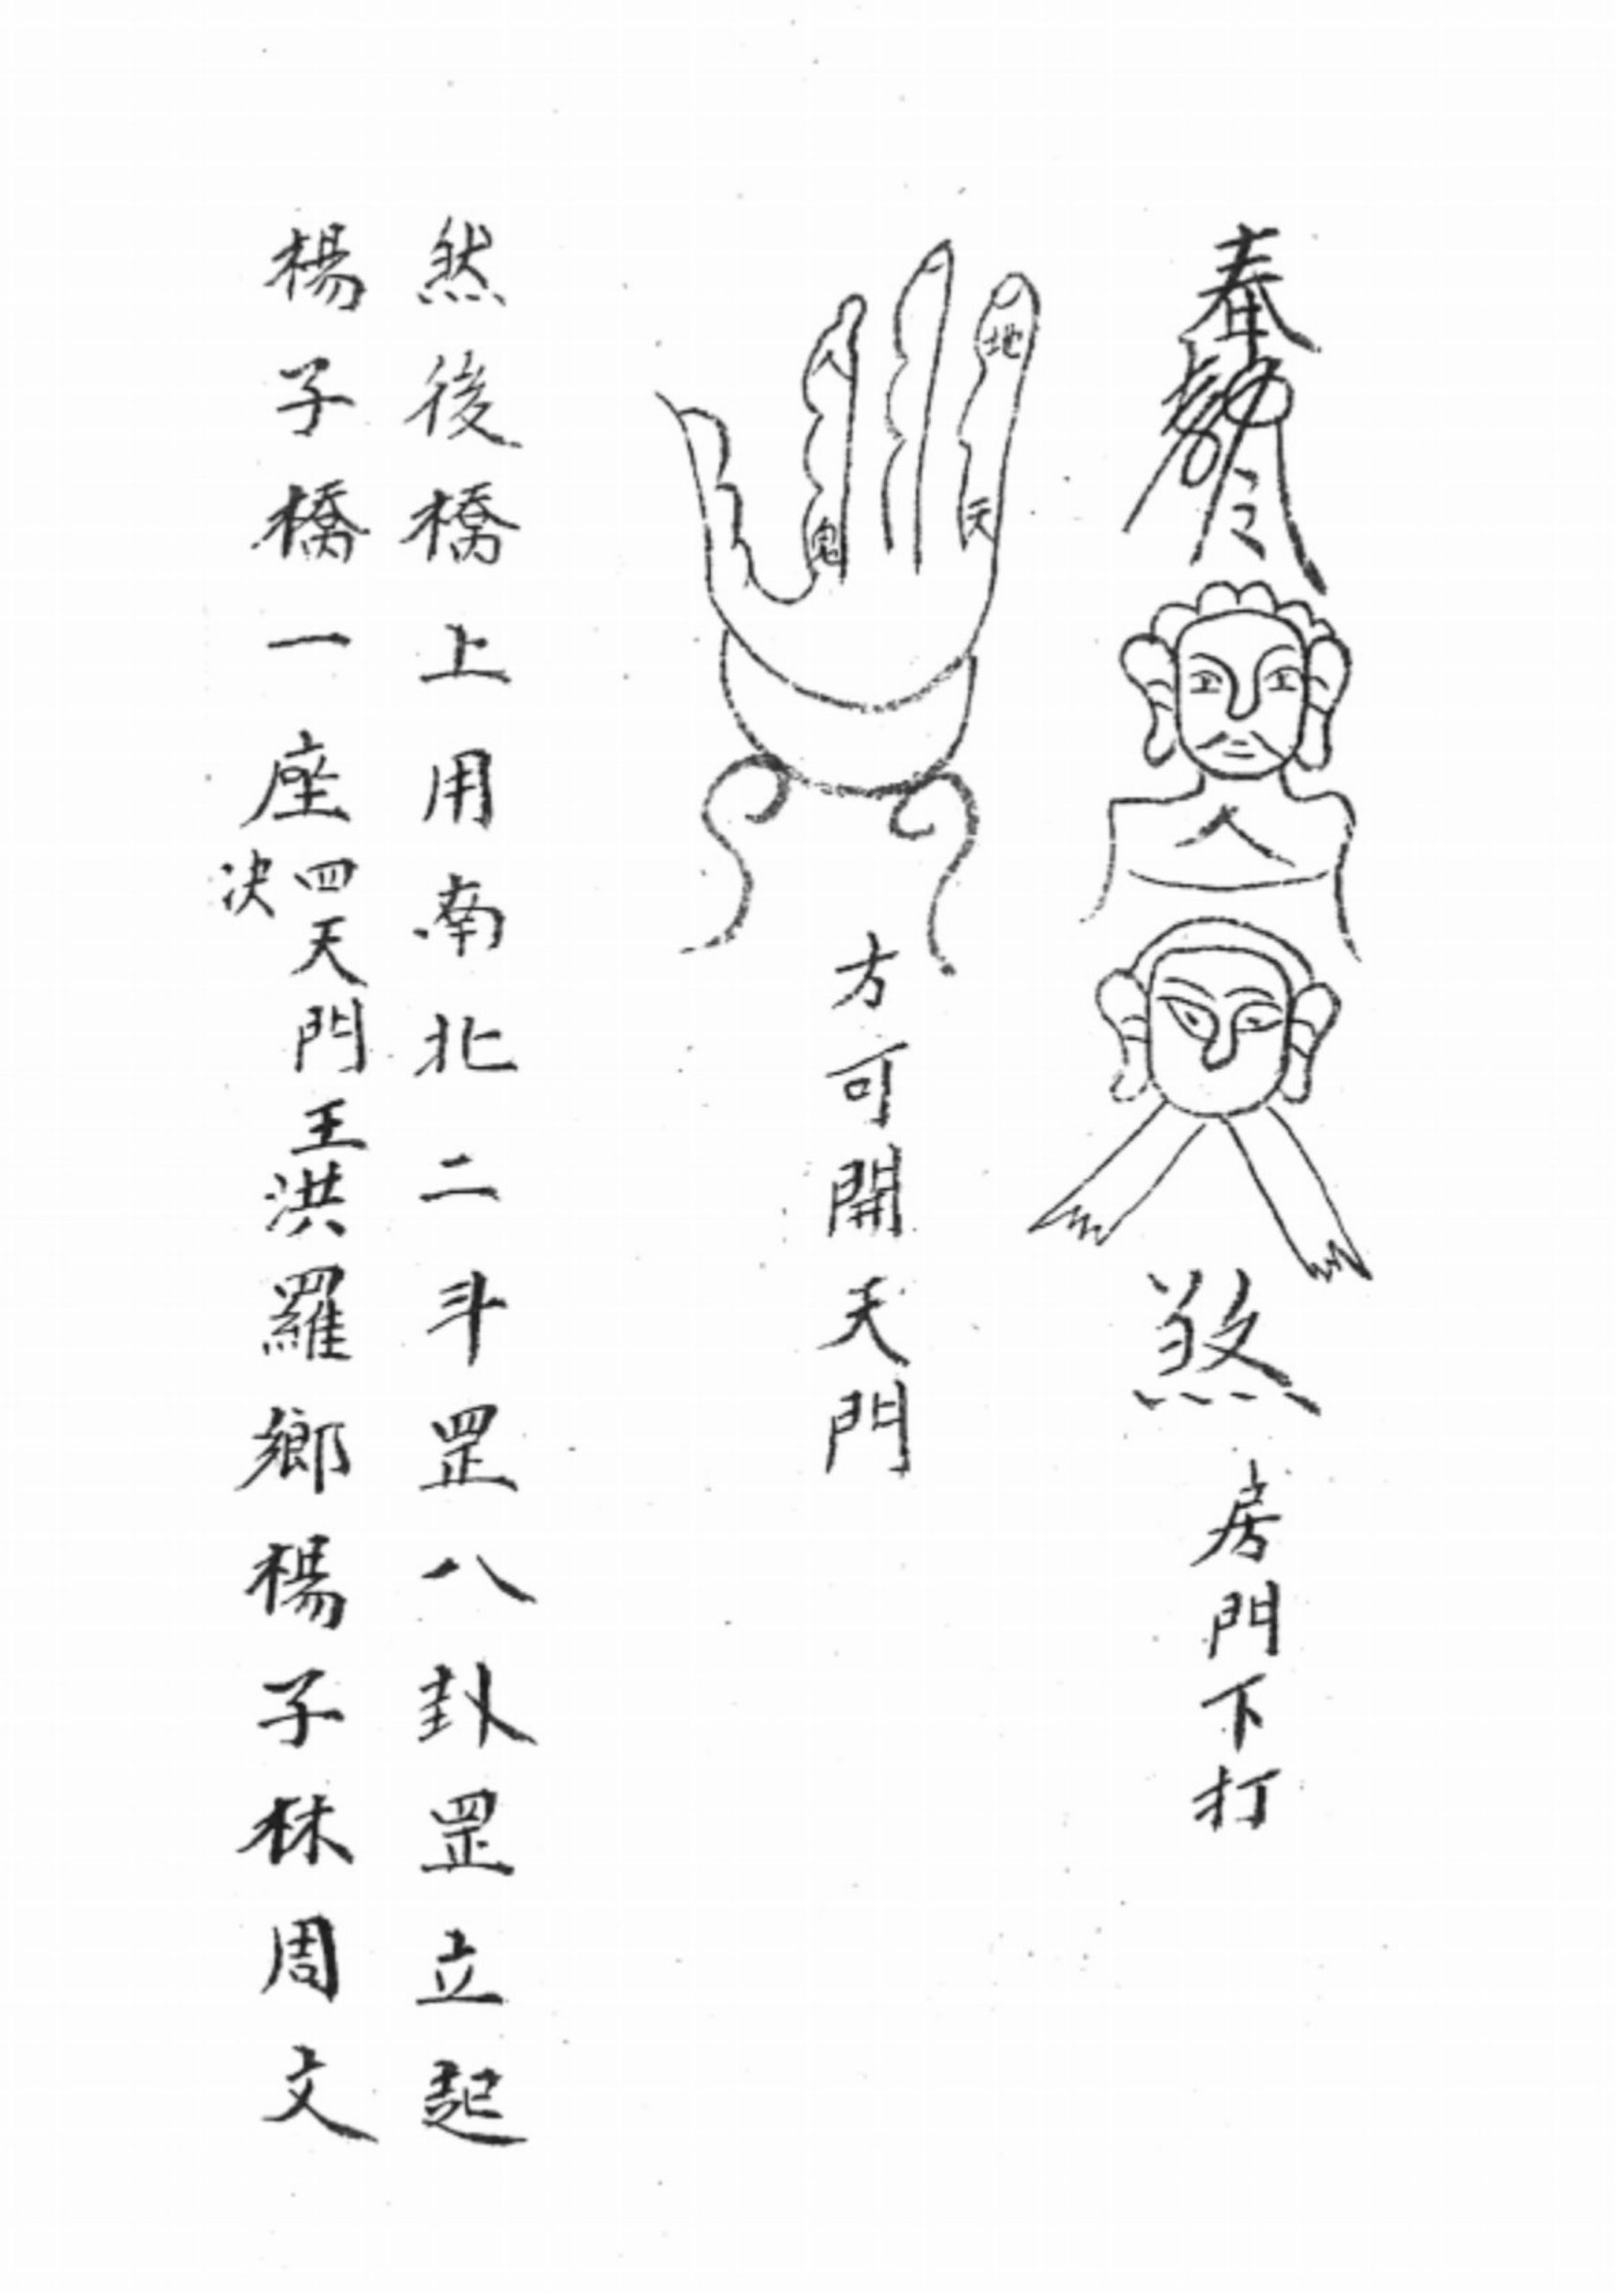 奉勅令
煞
房門下打
地
天
人
鬼
方可開天門
然後橋上用南北二斗罡八卦罡立起
楊子橋一座四天門王决洪羅鄉楊子林周文